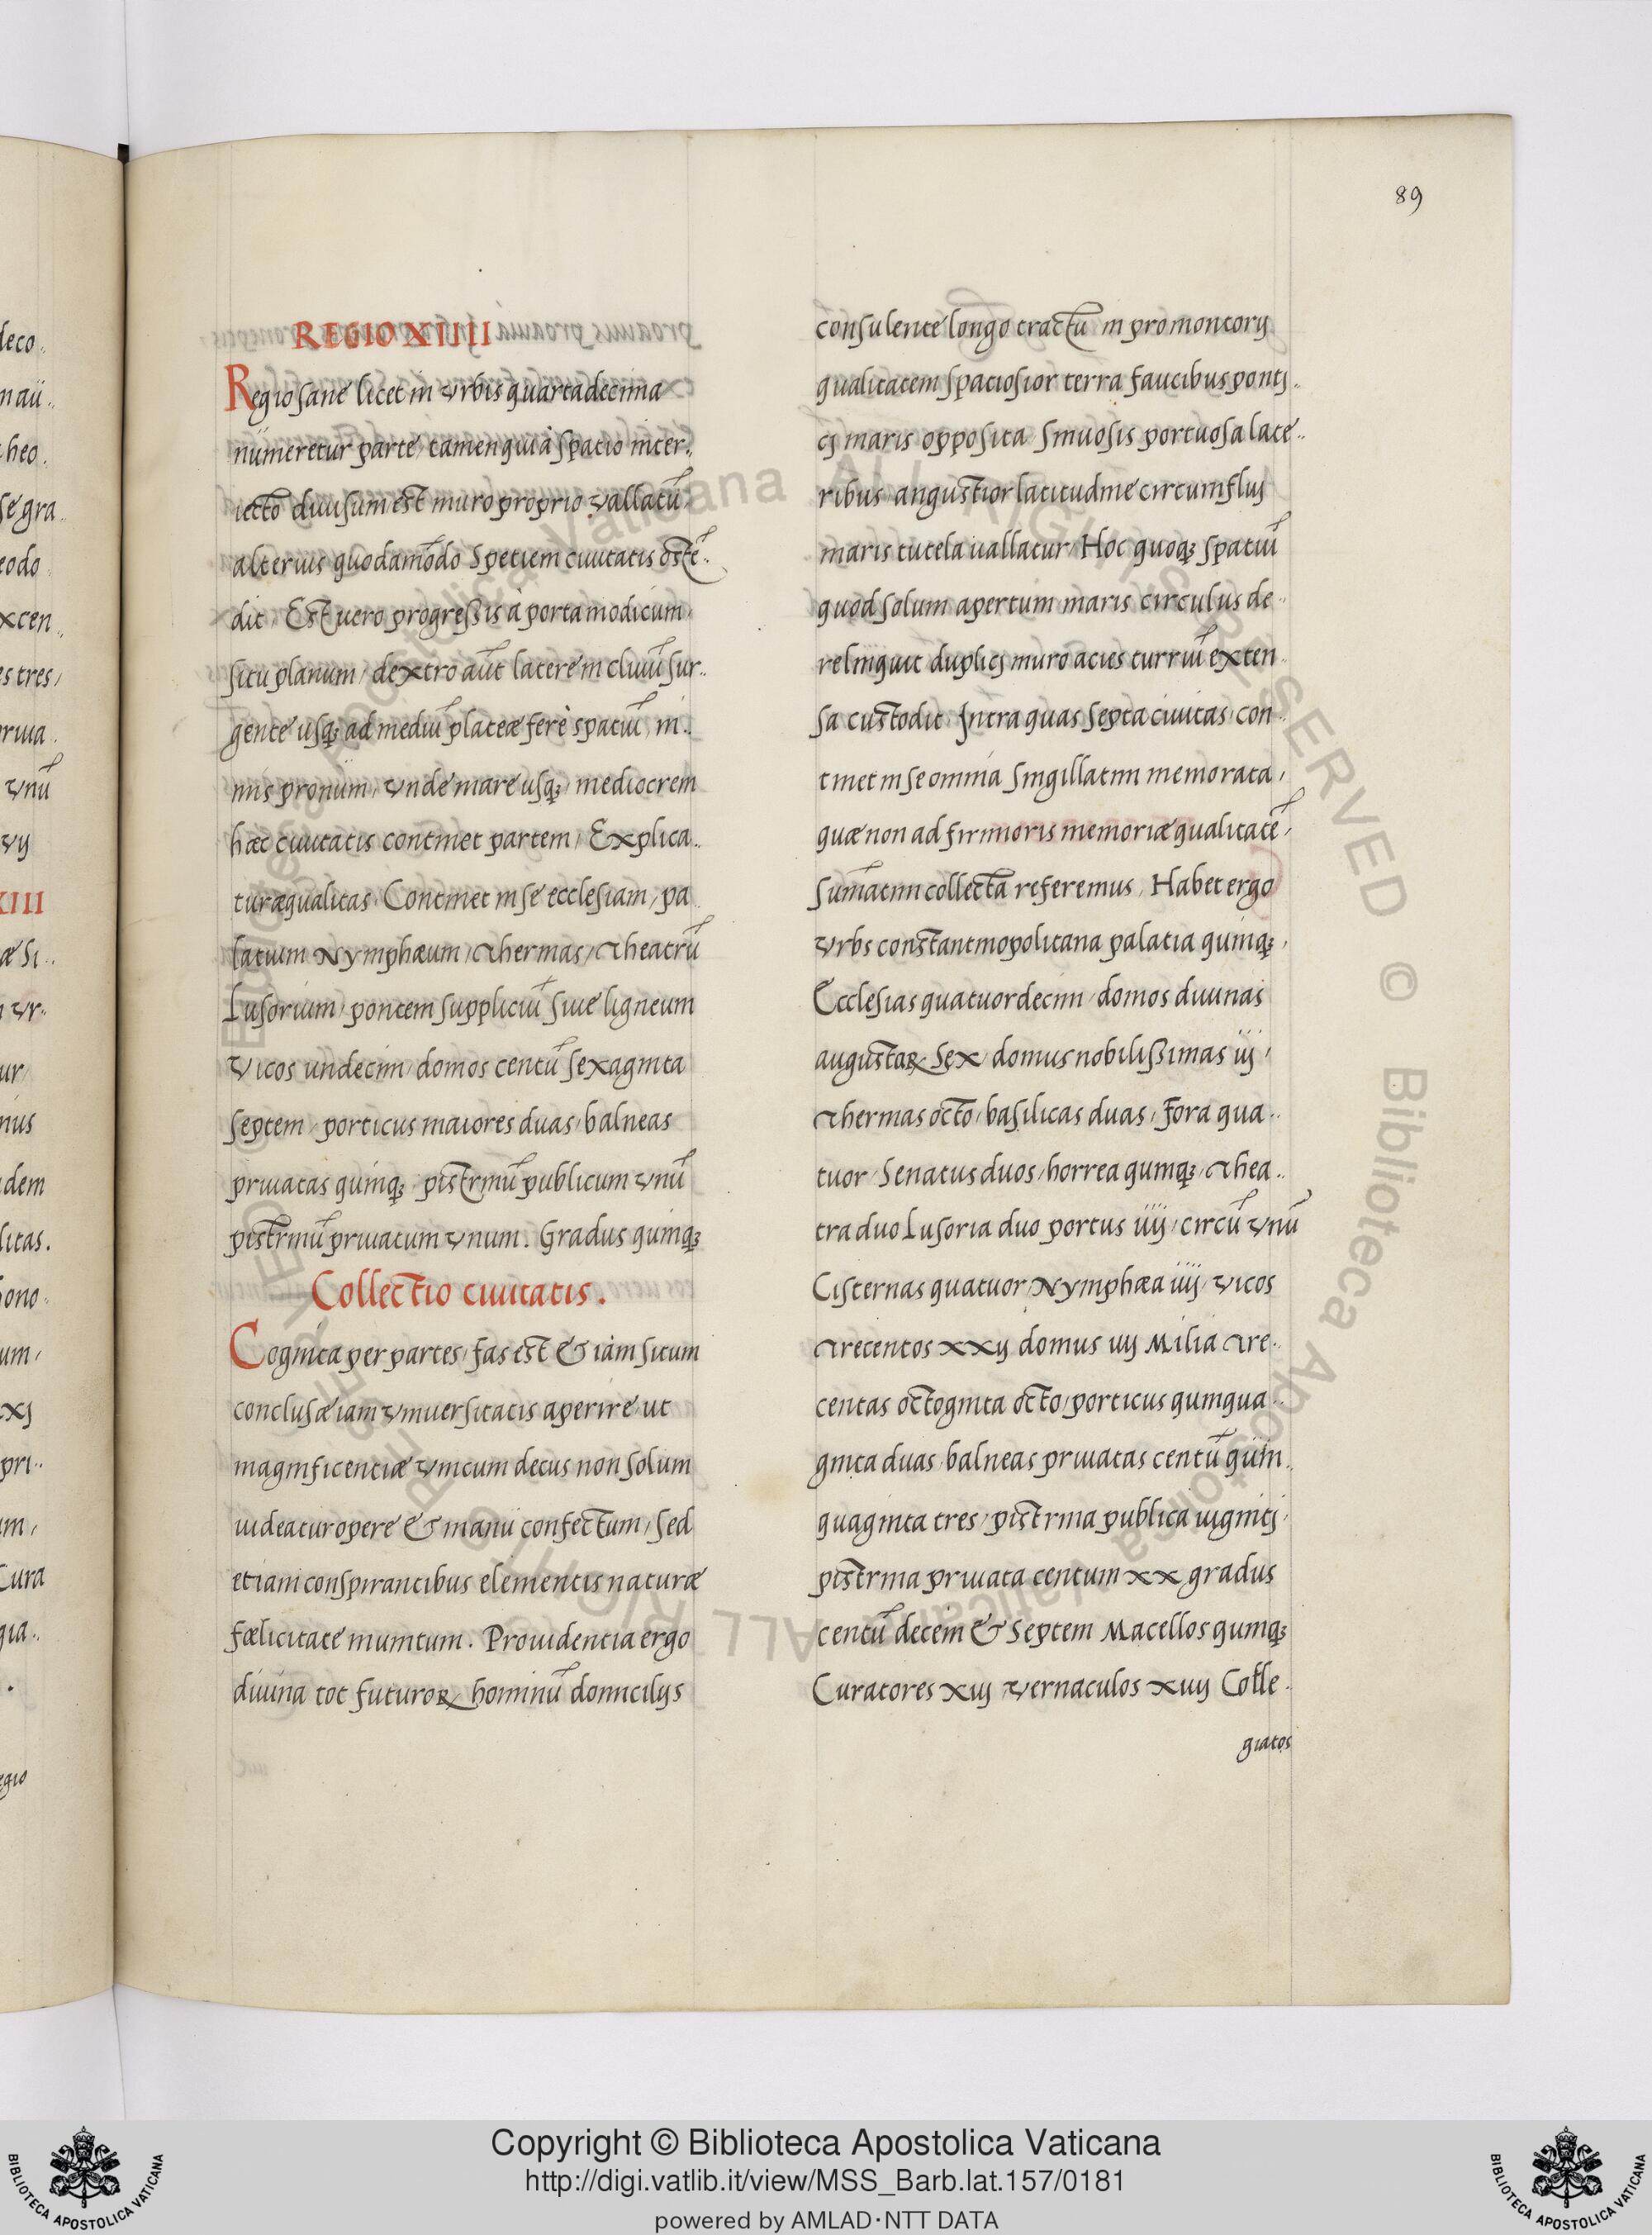 89
REGIO XIIII
Regio sane licet in Vrbis quartadecima
numeretur parte, tamen quia spacio inter..
iecto diuisum est muro proprio vallatū,
alterius quodamōdo Spetiem ciuitatis ostē..
dit. Est uero progressis à porta modicum,
situ planum, dextro aūt latere in cliuū sur..
gente usq; ad mediū plateæ ferè spatiū, ni..
mis pronum, Vnde mare usq; mediocrem
hæc ciuitatis continet partem, Explica..
turæqualitas. Continet in se ecclesiam, pa
latium Nymphæum, Thermas, Theatrū
Lusorium, pontem suppliciū siue ligneum
Vicos undecim, domos centū sexaginta
septem, porticus maiores duas, balneas
priuatas quinq; pistrinū publicum Vnū
pistrinū priuatum Vnum. Gradus quinq;
Collectio ciuitatis.
Cognita per partes, fas est & iam situm
conclusæ iam Vniuersitatis aperire ut
magnificentiæ Vnicum decus non solum
uideatur opere & manu confectum, sed
etiam conspirantibus elementis naturæ
fœlicitate munitum. Prouidentia ergo
diuina tot futuroꝝ hominū domicilijs
consulente longo tractū in promontorij
qualitatem spatiosior terra faucibus pontj..
cj maris opposita, sinuosis portuosa late..
ribus, angustior latitudine circumfluj
maris tutela uallatur, Hoc quoq; spatiū
quod solum apertum maris circulus de..
relinquit duplicj muro acies turriū exten..
sa custodit. Intra quas septa ciuitas, con..
tinet in se omnia singillatim memorata,
quæ non ad firmioris memoriæ qualitatē,
sum̄atim collecta referemus. Habet ergo
Vrbs constantinopolitana palatia quinq;,
Ecclesias quatuordecim, domos diuinas
augustaꝝ Sex, domus nobilissimas iij,
Thermas octo, basilicas duas, fora qua..
tuor, Senatus duos, horrea quinq;, Thea..
tra duo Lusoria duo portus iiij, circū Vnū
Cisternas quatuor, Nymphæa iiij, Vicos
Trecentos xxij domus iiij Milia Tre..
centas octoginta octo, porticus quinqua..
ginta duas, balneas priuatas centū quin..
quaginta tres, pistrina publica uigintj,
pistrina priuata centum xx gradus
centū decem & Septem Macellos quinq;
Curatores xiij Vernaculos xiiij Colle..
giatos
Copyright © Biblioteca Apostolica Vaticana
http://digi.vatlib.it/view/MSS_Barb.lat.157/0181
powered by AMLAD·NTT DATA